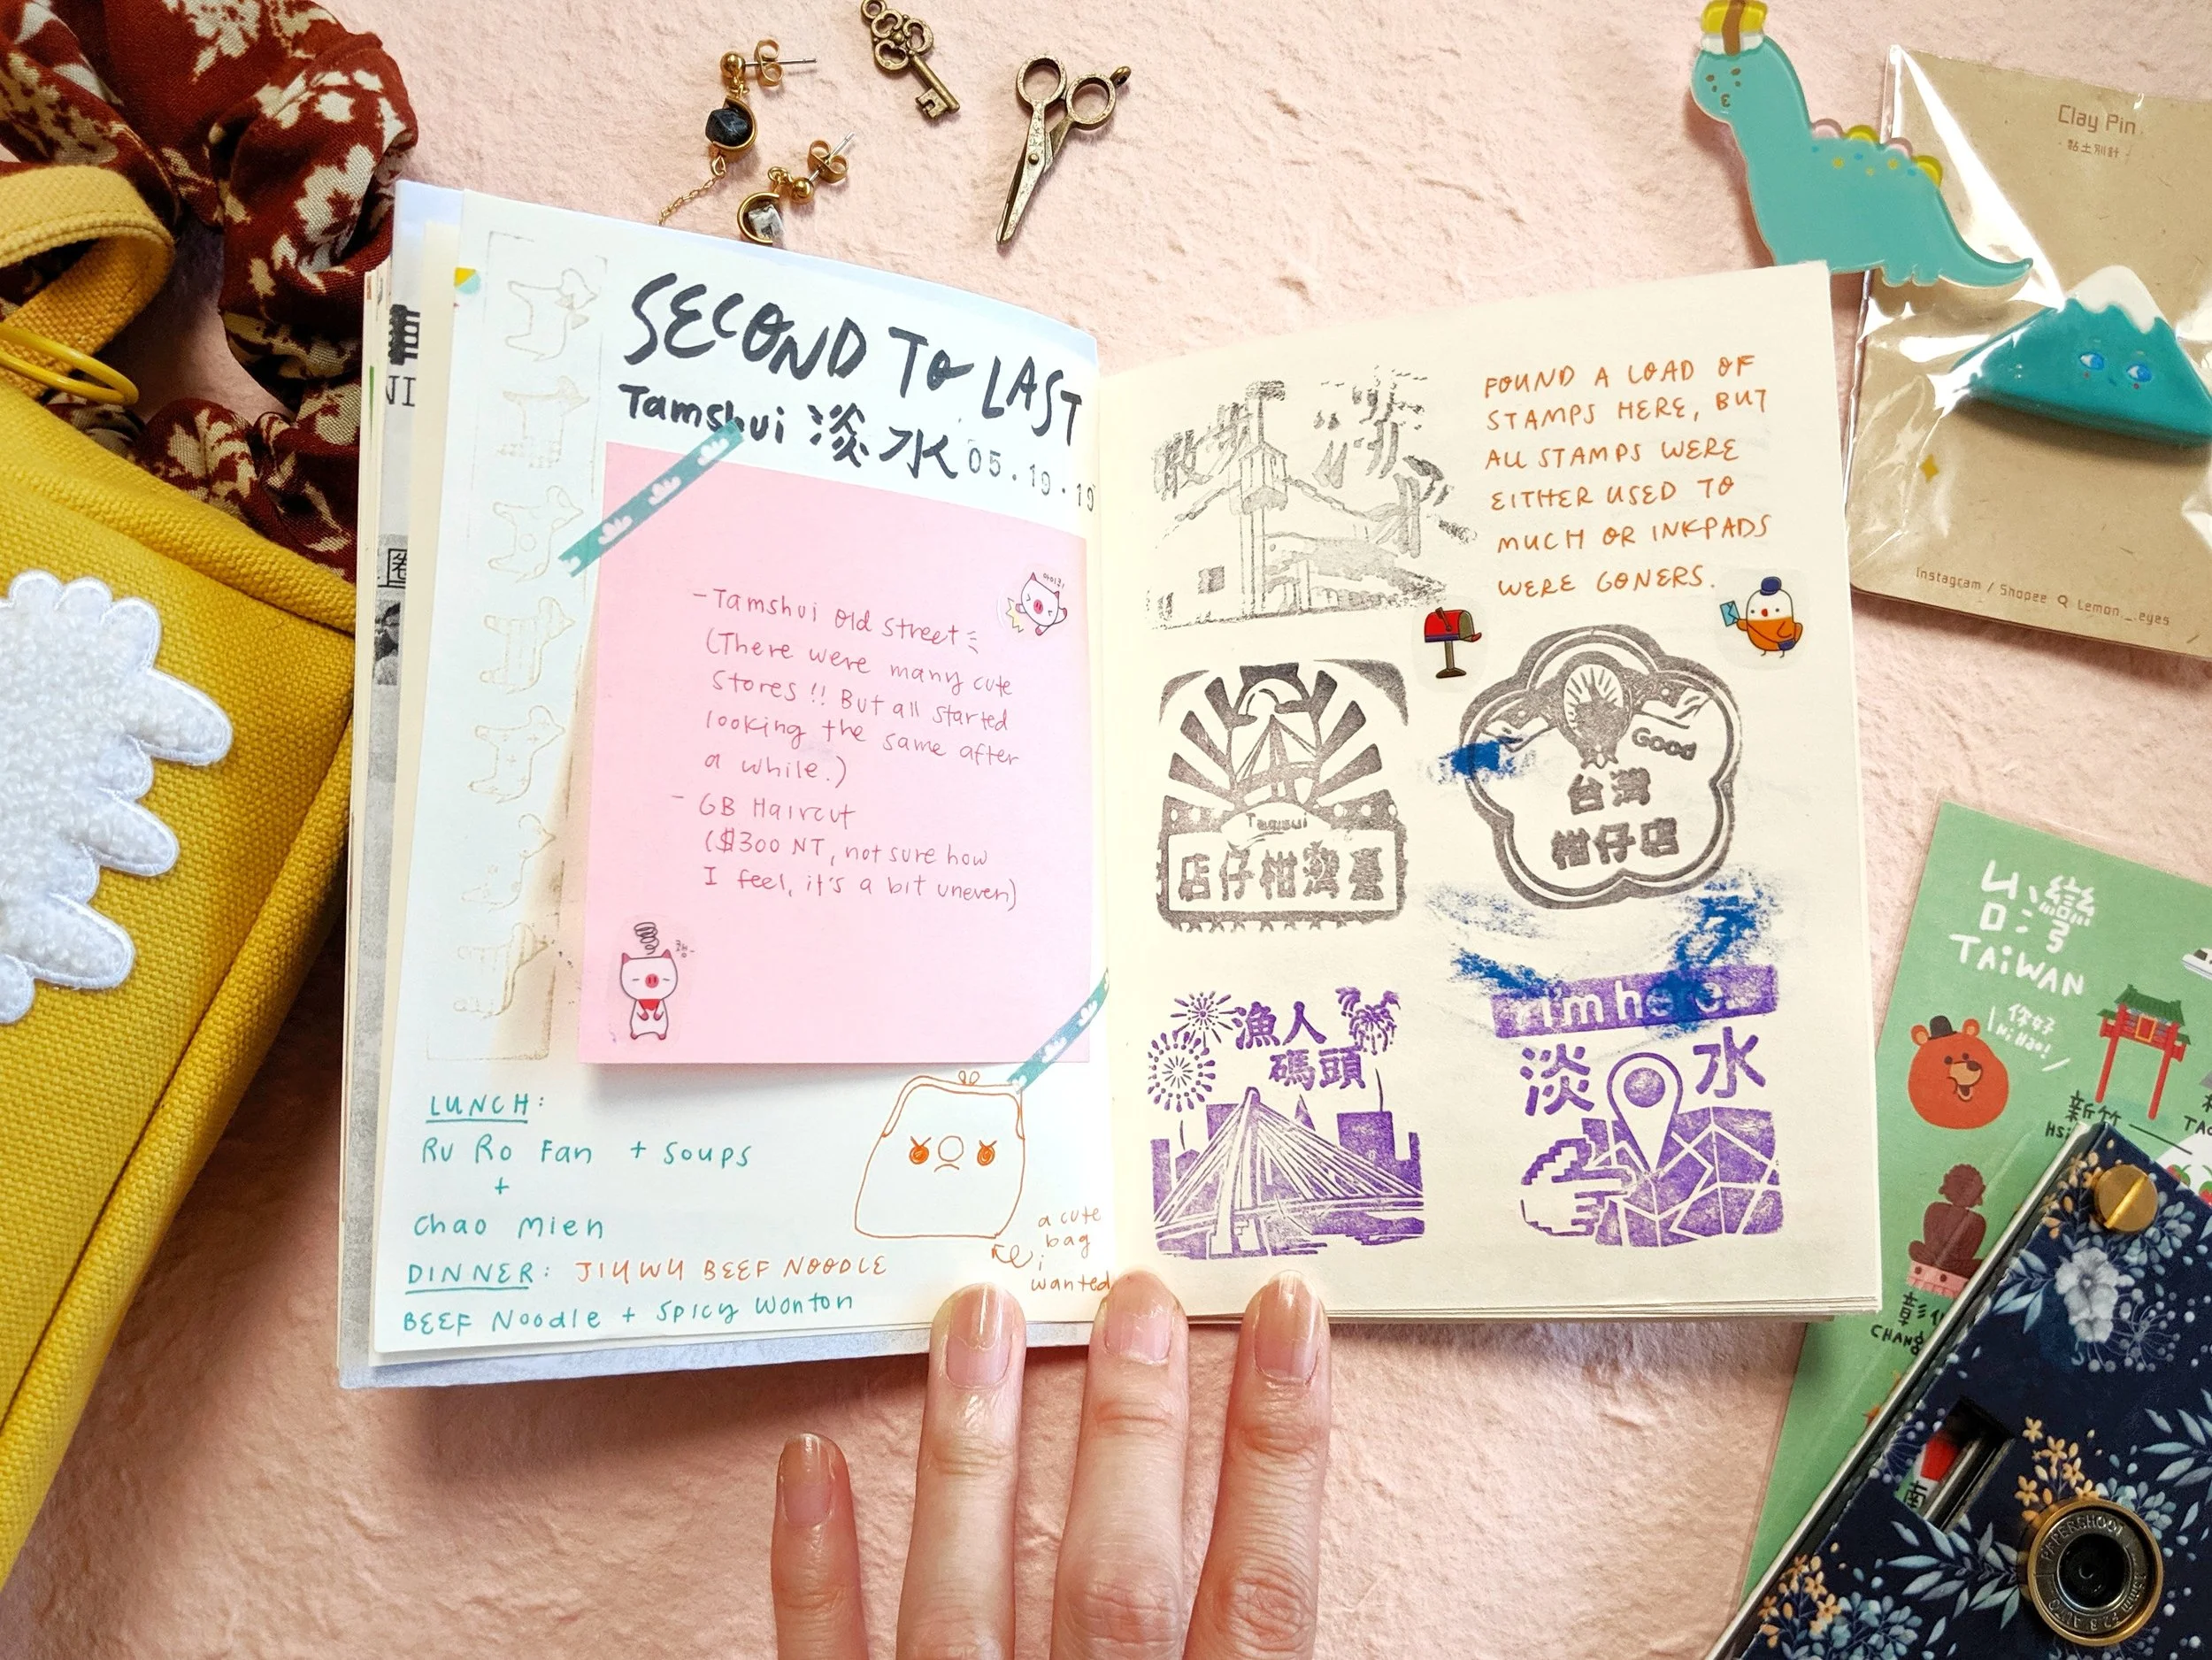 SECOND TO LAST
Tamshui 淡水 05.19.19
-Tamshui Old Street
(There were many cute
stores!! But all started
looking the same after
a while.)
- GB Haircut
($300 NT, not sure how
I feel, it's a bit uneven)
LUNCH:
Ru Ro Fan + Soups
+
Chao Mien
DINNER: JIUWU BEEF NOODLE
BEEF Noodle + Spicy Wonton
a cute
bag
i
wanted
FOUND A LOAD OF
STAMPS HERE, BUT
ALL STAMPS WERE
EITHER USED TO
MUCH OR INKPADS
WERE GONERS.
散步
Tamsui
店仔柑灣臺
Good
台灣
柑仔店
漁人
碼頭
I'm here
淡水
Clay Pin
黏土別針
Instagram / Shopee Lemon__eyes
台灣
TAIWAN
你好
Ni Hao!
新竹
HSI
TAO
彰化
CHANG
南
PAPERSHOOT